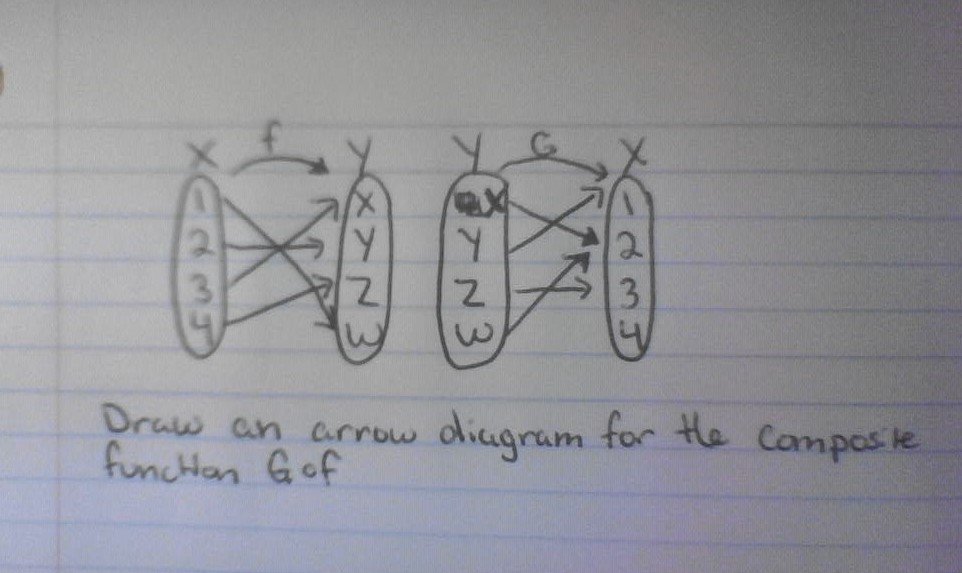 X f Y Y G X
1 X X 1
2 Y Y 2
3 Z Z 3
4 W W 4
Draw an arrow diagram for the composite
function G of